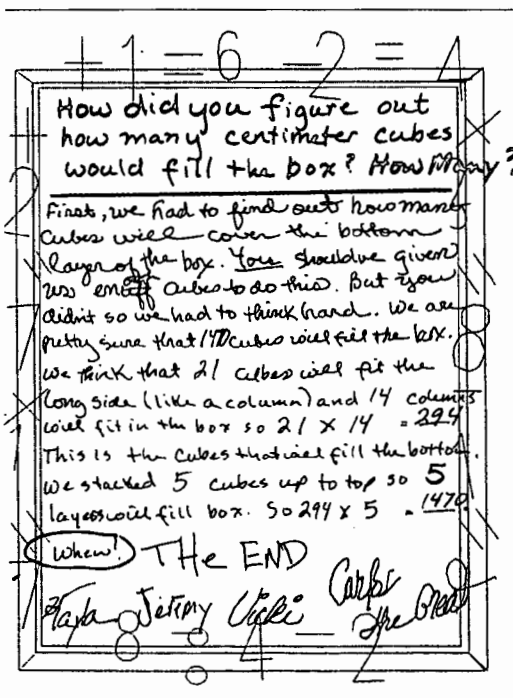 + 1 = 6 - 2 = 4
How did you figure out
how many centimeter cubes
would fill the box? How Many?
First, we had to find out how many
cubes will cover the bottom
layer of the box. You should've given
us enuff cubes to do this. But you
didn't so we had to think hard. We are
pretty sure that 1470 cubes will fill the box.
We think that 21 cubes will fit the
long side (like a column) and 14 columns
will fit in the box so 21 x 14 = 294
This is the cubes that will fill the bottom.
We stacked 5 cubes up to top so 5
layers will fill box. So 294 x 5 = 1470.
Whew! THe END
Kayla Jeremy Vicki Carlos the Great